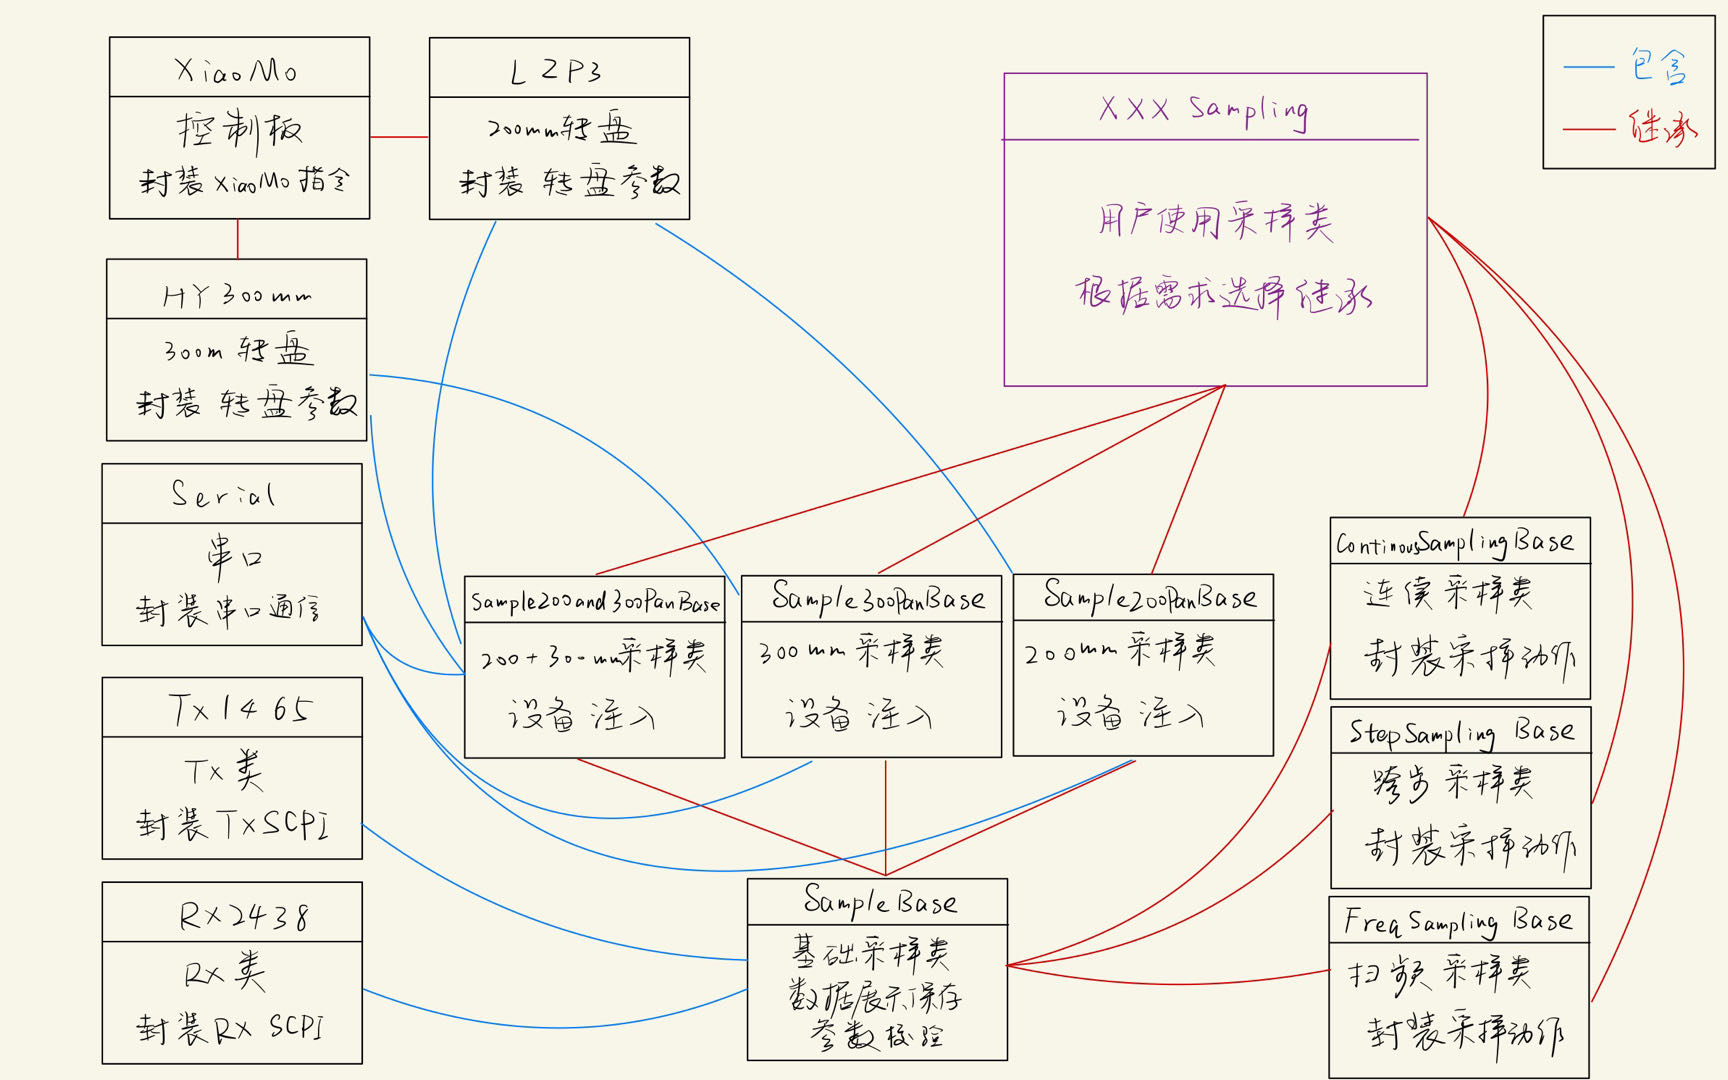 XiaoMo
控制板
封装 XiaoMo 指令
LZP3
200mm转盘
封装 转盘参数
XXX Sampling
用户使用采样类
根据需求选择继承
包含
继承
HY300mm
300m 转盘
封装 转盘参数
Serial
串口
封装串口通信
Tx1465
Tx类
封装TxSCPI
Rx2438
Rx类
封装Rx SCPI
Sample200and300PanBase
200+300mm采样类
设备 注入
Sample300PanBase
300mm 采样类
设备 注入
Sample200PanBase
200mm 采样类
设备 注入
SampleBase
基础采样类
数据展示保存
参数校验
ContinousSamplingBase
连续采样类
封装采样动作
StepSampling Base
跨步 采样类
封装采样动作
FreqSampling Base
扫频 采样类
封装采样动作